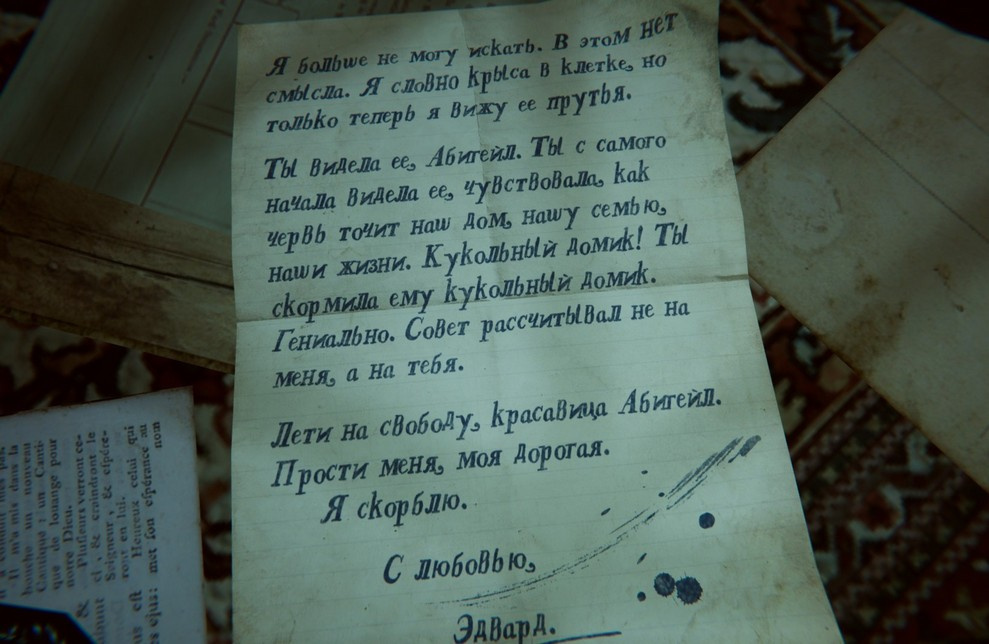 Я больше не могу искать. В этом нет
смысла. Я словно крыса в клетке, но
только теперь я вижу ее прутья.
Ты видела ее, Абигейл. Ты с самого
начала видела ее, чувствовала, как
червь точит наш дом, нашу семью,
наши жизни. Кукольный домик! Ты
скормила ему кукольный домик.
Гениально. Совет рассчитывал не на
меня, а на тебя.
Лети на свободу, красавица Абигейл.
Прости меня, моя дорогая.
Я скорблю.
С любовью,
Эдвард.
Il m'a mis dans la
bouche un nouveau
Cantique : un Canti-
que de louange pour
notre Dieu.
Plusieurs verront ce-
ci, & craindront le
Seigneur, & espére-
ront en lui.
Heureux celui qui
met son espérance au
nom